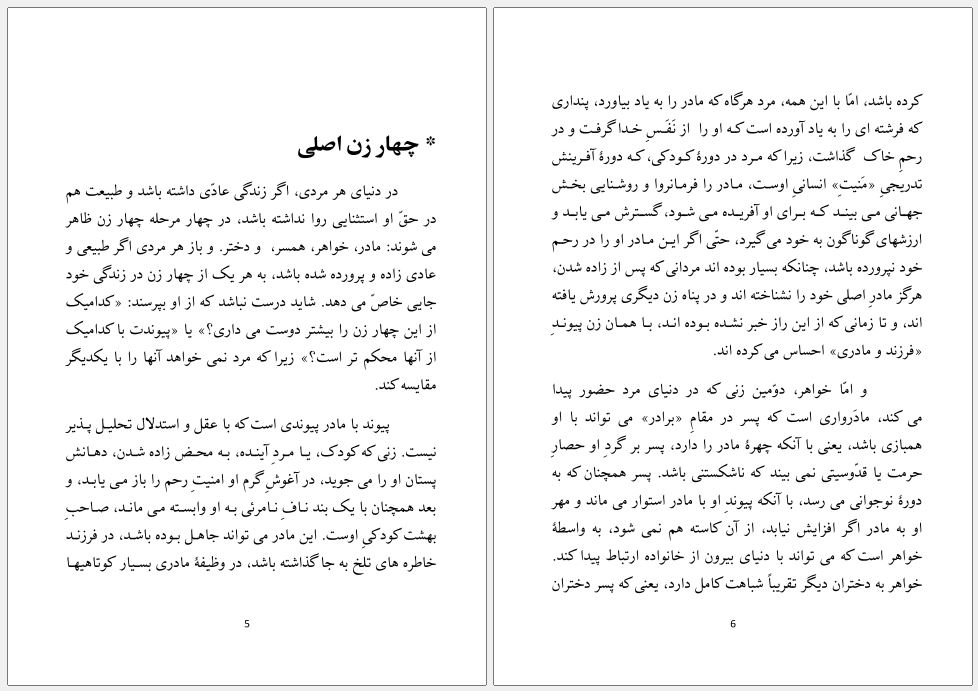 * چهار زن اصلی
در دنیای هر مردی، اگر زندگی عادّی داشته باشد و طبیعت هم
در حقّ او استثنایی روا نداشته باشد، در چهار مرحله چهار زن ظاهر
می شوند: مادر، خواهر، همسر، و دختر. و باز هر مردی اگر طبیعی و
عادی زاده و پرورده شده باشد، به هر یک از چهار زن در زندگی خود
جایی خاصّ می دهد. شاید درست نباشد که از او بپرسند: «کدامیک
از این چهار زن را بیشتر دوست می داری؟» یا «پیوندت با کدامیک
از آنها محکم تر است؟» زیرا که مرد نمی خواهد آنها را با یکدیگر
مقایسه کند.
پیوند با مادر پیوندی است که با عقل و استدلال تحلیل پذیر
نیست. زنی که کودک، یا مردِ آینده، به محض زاده شدن، دهانش
پستان او را می جوید، در آغوشِ گرم او امنیتِ رحم را باز می یابد، و
بعد همچنان با یک بند نافِ نامرئی به او وابسته می ماند، صاحبِ
بهشت کودکیِ اوست. این مادر می تواند جاهل بوده باشد، در فرزند
خاطره های تلخ به جا گذاشته باشد، در وظیفهٔ مادری بسیار کوتاهیها
5
کرده باشد، امّا با این همه، مرد هرگاه که مادر را به یاد بیاورد، پنداری
که فرشته ای را به یاد آورده است که او را از نَفَسِ خدا گرفت و در
رحمِ خاک گذاشت، زیرا که مرد در دورهٔ کودکی، که دورهٔ آفرینش
تدریجیِ «مَنیتِ» انسانیِ اوست، مادر را فرمانروا و روشنایی بخش
جهانی می بیند که برای او آفریده می شود، گسترش می یابد و
ارزشهای گوناگون به خود می گیرد، حتّی اگر این مادر او را در رحم
خود نپرورده باشد، چنانکه بسیار بوده اند مردانی که پس از زاده شدن،
هرگز مادرِ اصلی خود را نشناخته اند و در پناه زن دیگری پرورش یافته
اند، و تا زمانی که از این راز خبر نشده بوده اند، با همان زن پیوندِ
«فرزند و مادری» احساس می کرده اند.
و امّا خواهر، دوّمین زنی که در دنیای مرد حضور پیدا
می کند، مادَرواری است که پسر در مقامِ «برادر» می تواند با او
همبازی باشد، یعنی با آنکه چهرهٔ مادر را دارد، پسر بر گردِ او حصارِ
حرمت یا قدّوسیتی نمی بیند که ناشکستنی باشد. پسر همچنان که به
دورهٔ نوجوانی می رسد، با آنکه پیوندِ او با مادر استوار می ماند و مهر
او به مادر اگر افزایش نیابد، از آن کاسته هم نمی شود، به واسطهٔ
خواهر است که می تواند با دنیای بیرون از خانواده ارتباط پیدا کند.
خواهر به دختران دیگر تقریباً شباهت کامل دارد، یعنی که پسر دختران
6